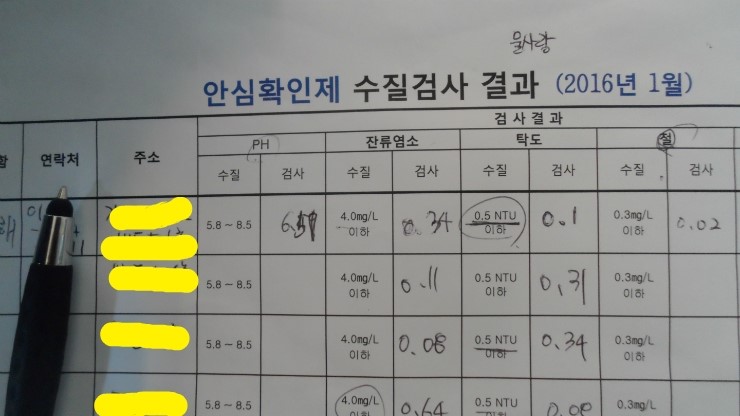 물사랑
안심확인제 수질검사 결과 (2016년 1월)
연락처 주소 검사결과
PH 잔류염소 탁도 철
수질 검사 수질 검사 수질 검사 수질 검사
5.8 ~ 8.5 4.0mg/L 이하 0.34 0.5 NTU 이하 0.1 0.3mg/L 이하 0.02
5.8 ~ 8.5 4.0mg/L 이하 0.11 0.5 NTU 이하 0.31 0.3mg/L 이하
5.8 ~ 8.5 4.0mg/L 이하 0.08 0.5 NTU 이하 0.34 0.3mg/L 이하
5.8 ~ 8.5 4.0mg/L 이하 0.64 0.5 NTU 이하 0.3mg/L